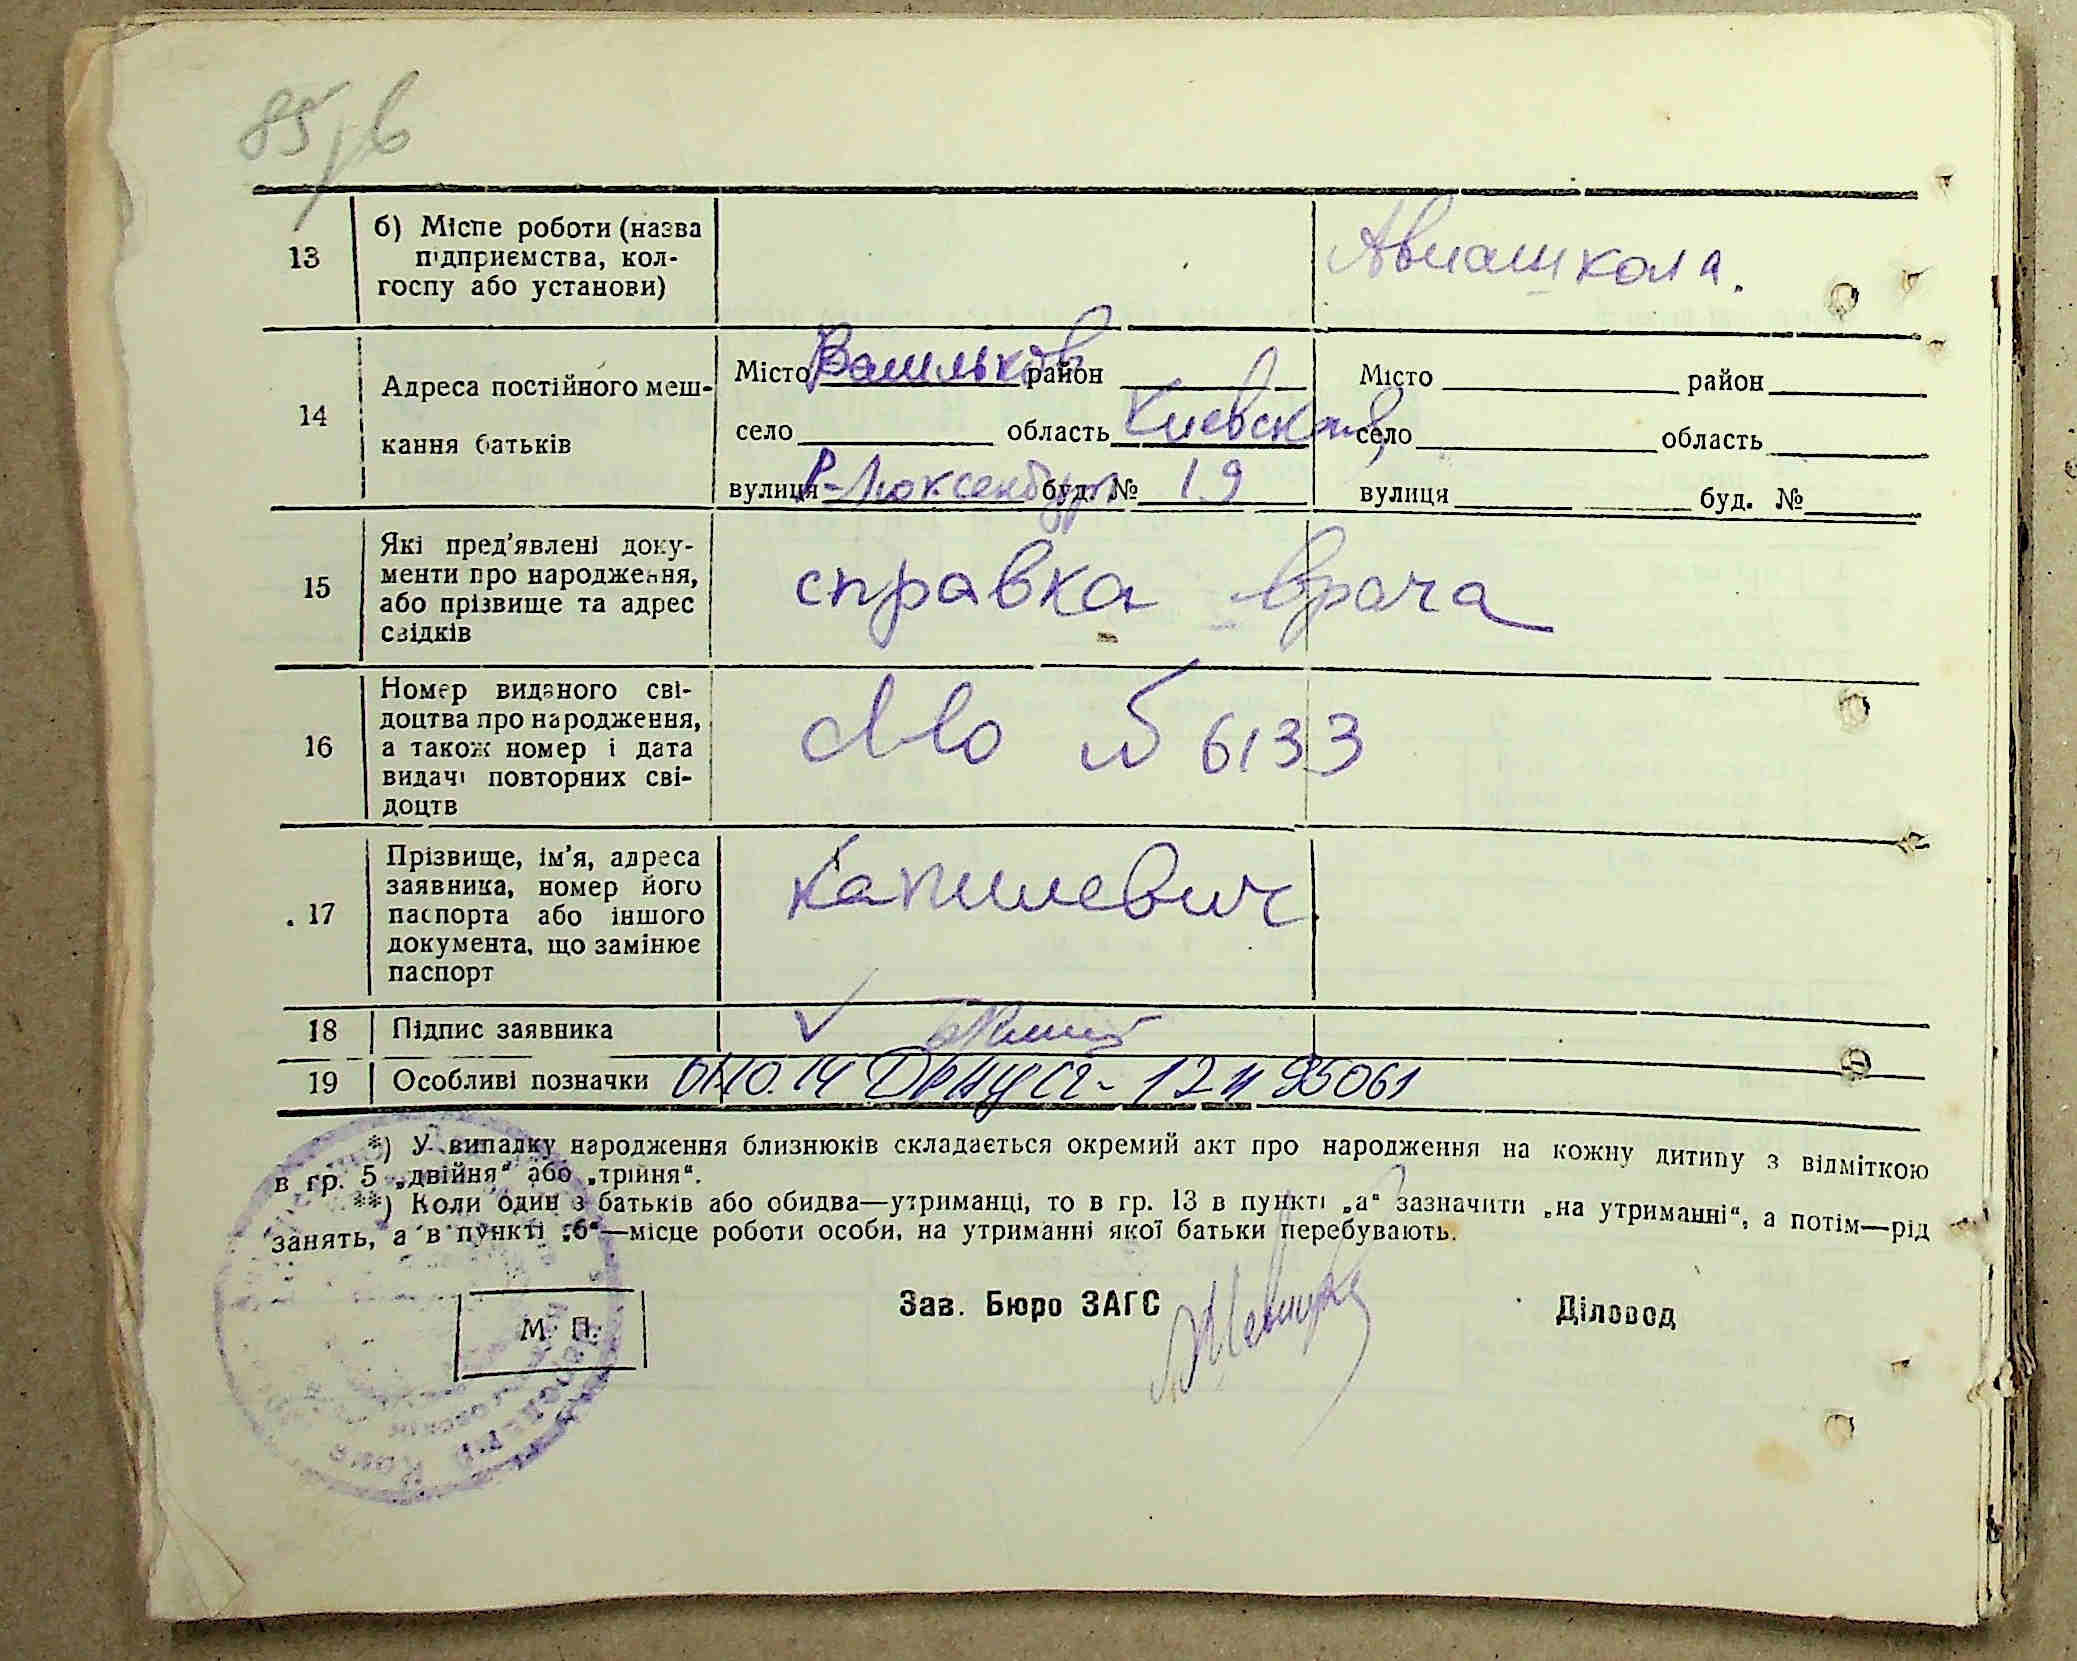 85
13
б) Місце роботи (назва
підприємства, кол-
госпу або установи)
Авиашкола.
14
Адреса постійного меш-
кання батьків
Місто Васильков район
село область Киевская
вулиця Р-Люксенбург буд. № 19
Місто район
село область
вулиця буд. №
15
Які пред'явлені доку-
менти про народження,
або прізвище та адрес
свідків
справка врача
16
Номер виданого сві-
доцтва про народження,
а також номер і дата
видачі повторних сві-
доцтв
№ 6133
17
Прізвище, ім'я, адреса
заявника, номер його
паспорта або іншого
документа, що замінює
паспорт
Капилевич
18 Підпис заявника
19 Особливі позначки 95061
*) У випадку народження близнюків складається окремий акт про народження на кожну дитину з відміткою
в гр. 5 „двійня“ або „трійня“.
**) Коли один з батьків або обидва—утриманці, то в гр. 13 в пункті „а“ зазначити „на утриманні“, а потім—рід
занять, а в пункті „б“—місце роботи особи, на утриманні якої батьки перебувають.
Зав. Бюро ЗАГС
Діловод
М. П.